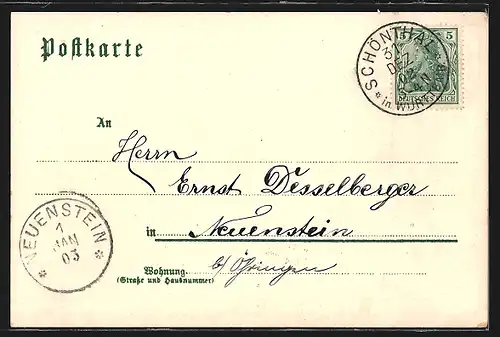 Postkarte
SCHÖNTHAL
31
DEZ
02
4-N
* in WÜRTTBG *
5
DEUTSCHES REICH
An
Herrn
Ernst Desselberger
in Neuenstein
b/ Öhringen
Wohnung.
(Straße und Hausnummer)
* NEUENSTEIN *
1
JAN
03